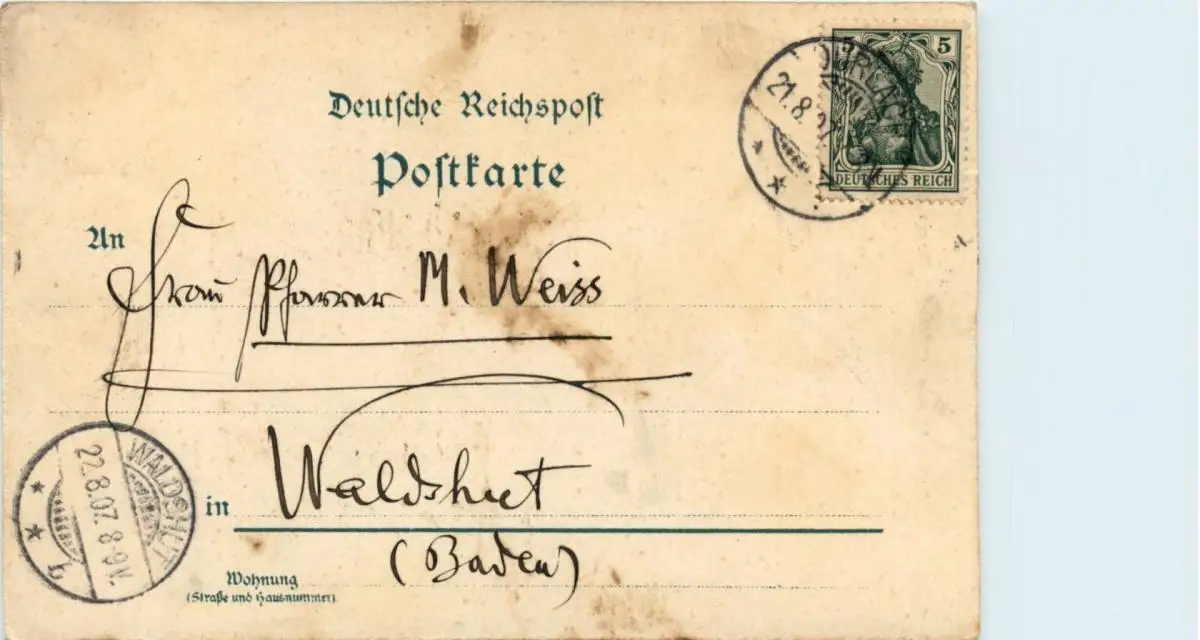 Deutsche Reichspost
Postkarte
5 5
DEUTSCHES REICH
DURLACH
21.8.
An
Frau Pfarrer M. Weiss
in Waldshut
(Baden)
Wohnung
(Straße und Hausnummer)
WALDSHUT
22.8.07. 8-9V.